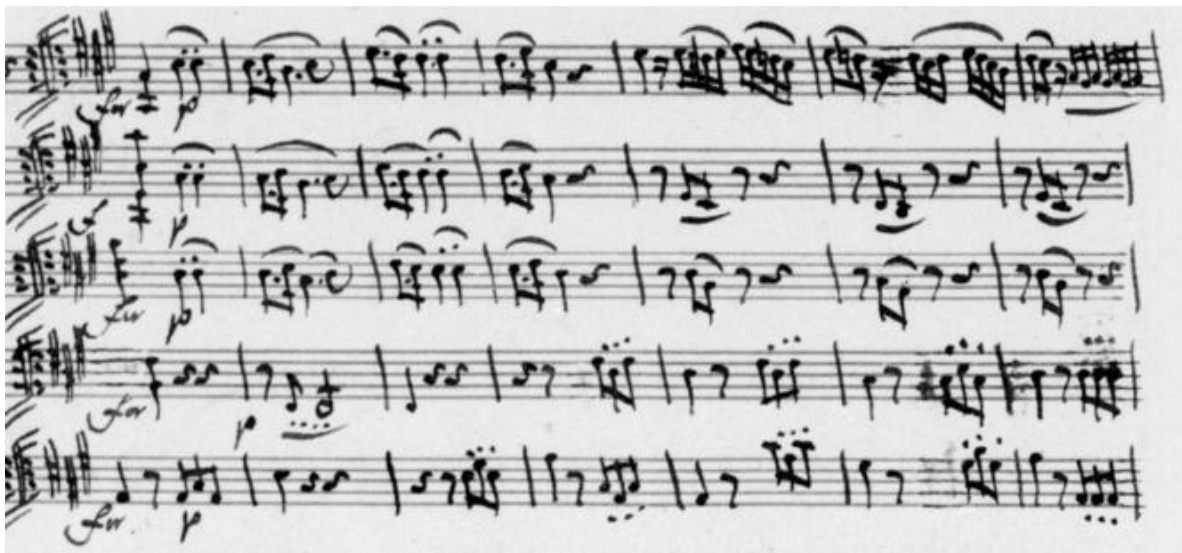 for p
p
for p
for p
for p